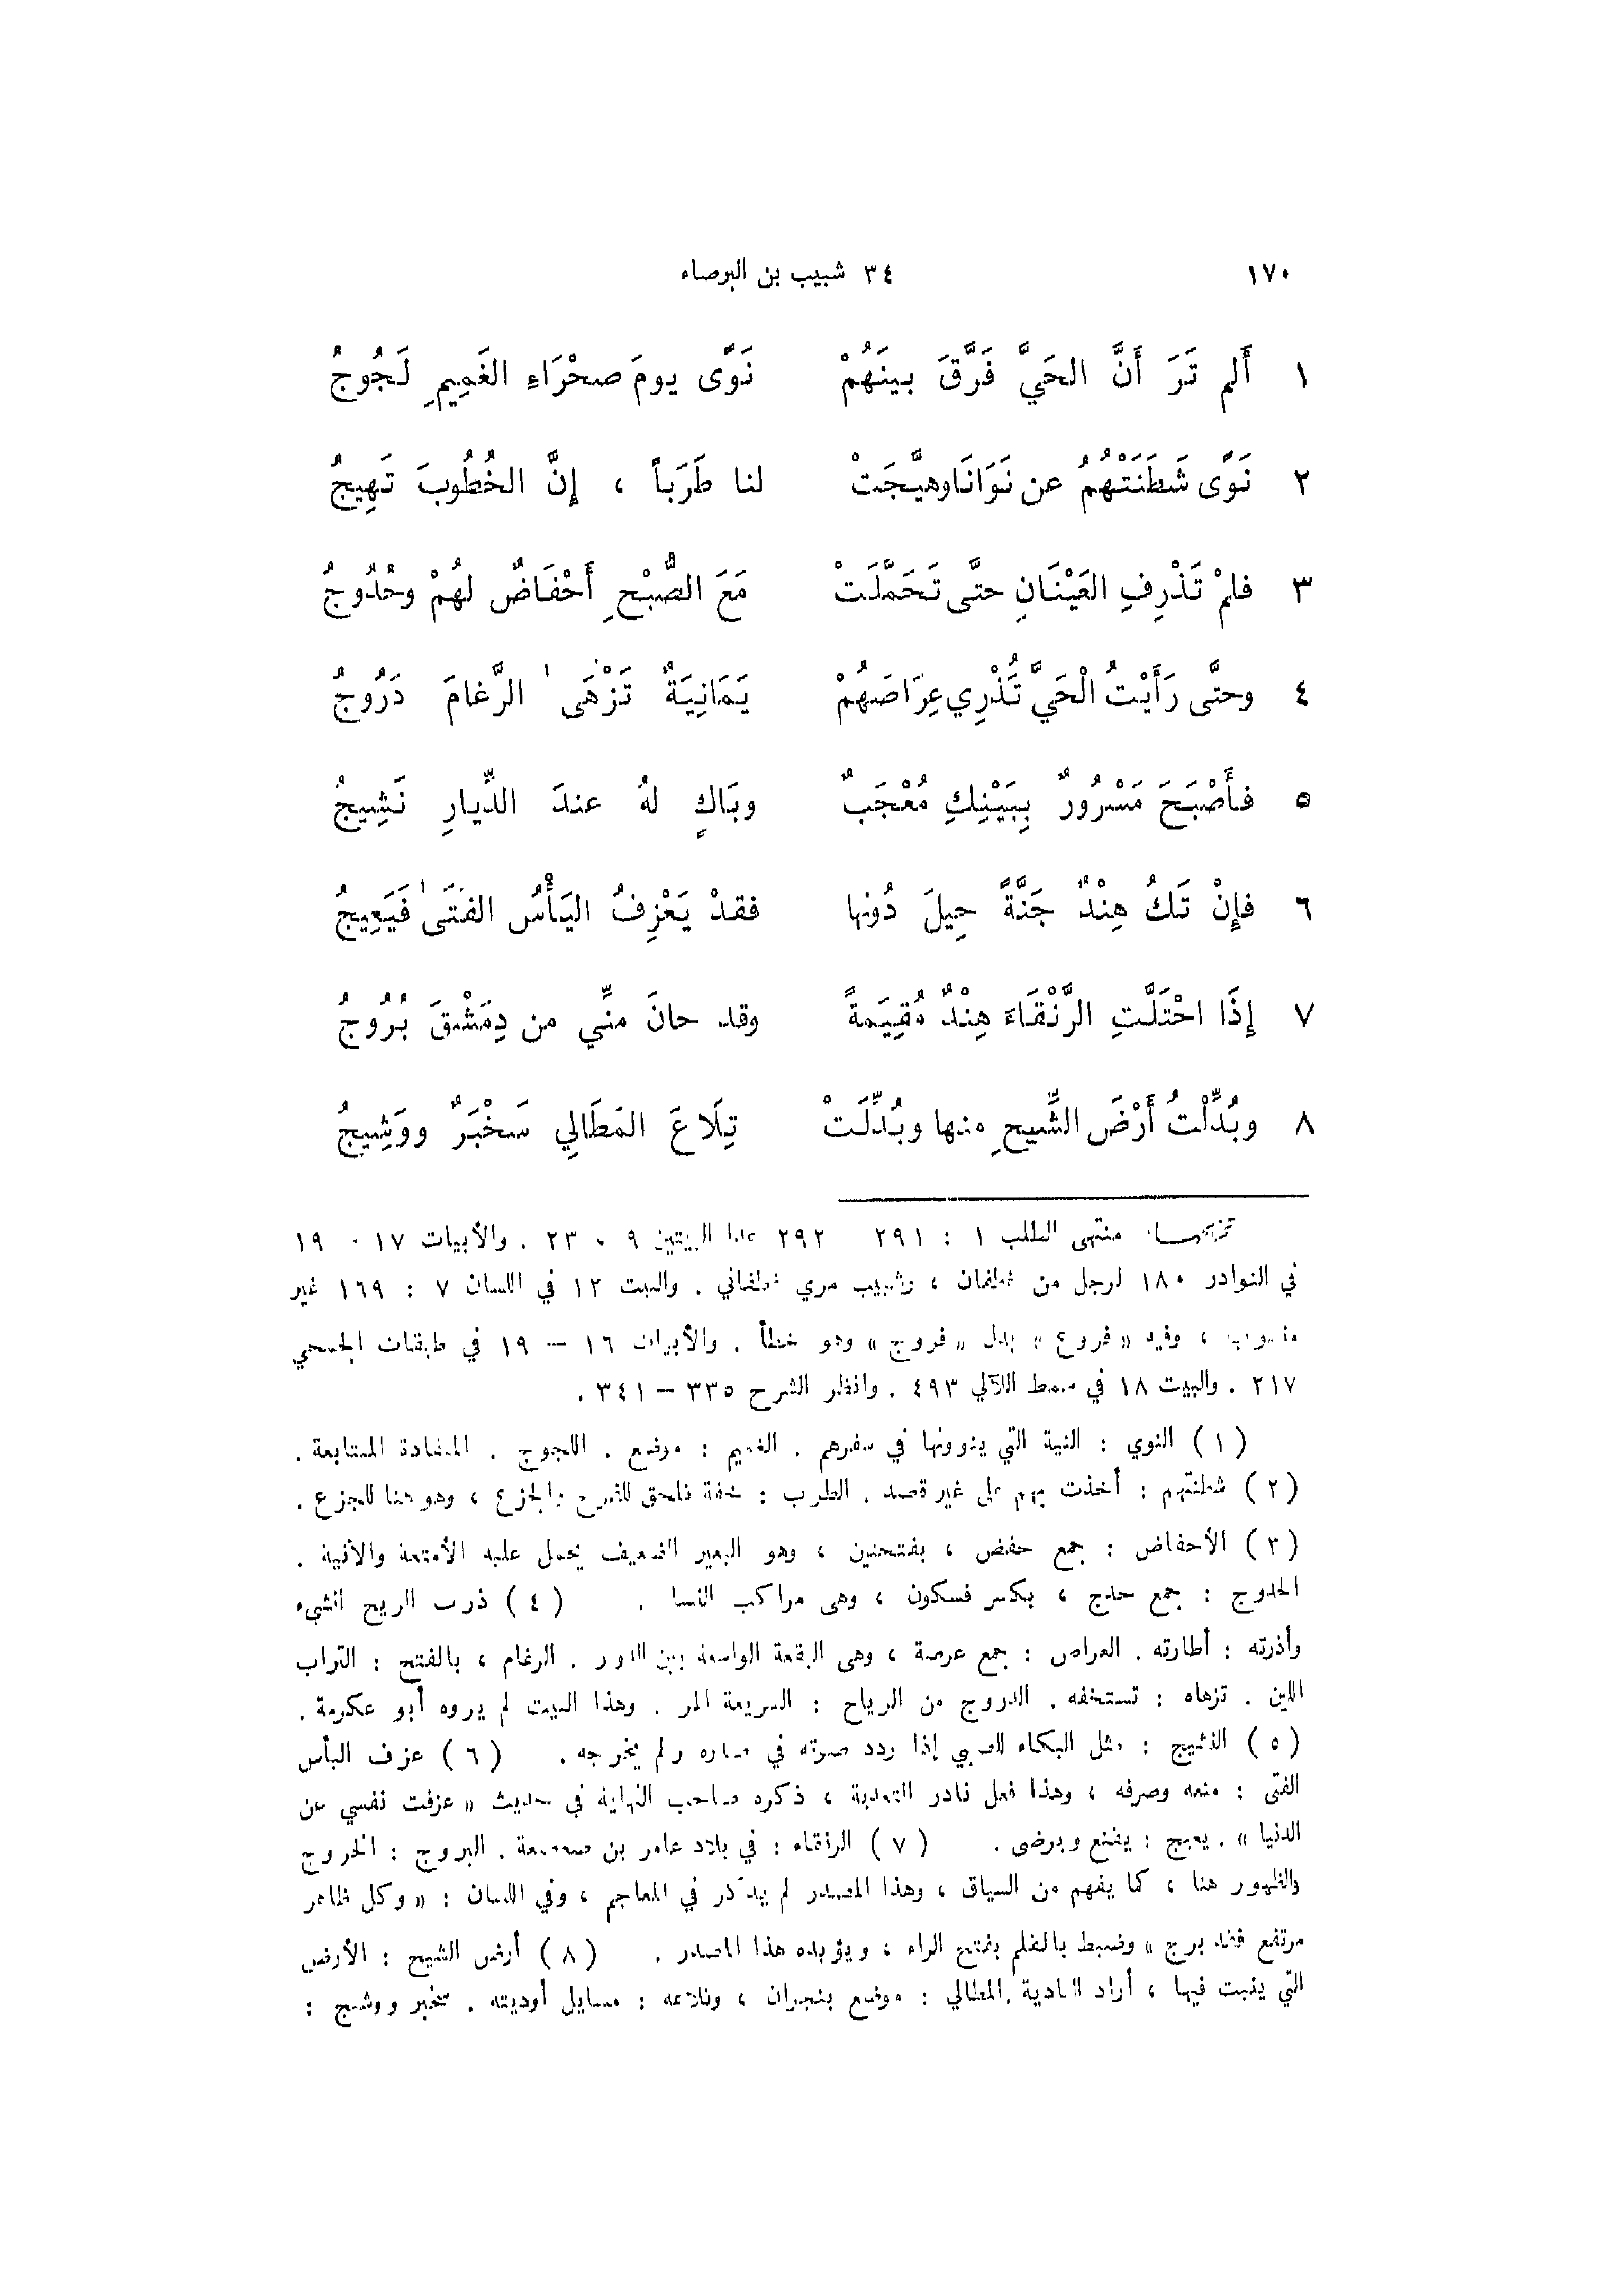 ١٧٠ ٣٤ شبيب بن البرصاء
١ أَلم تَرَ أَنَّ الحَيَّ فَرَّقَ بينَهُمْ نَوًى يومَ صحْرَاءِ الغَمِيمِ لَجُوجُ
٢ نَوًى شَطَنَتْهُمُ عن نَوَانَا وهيَّجَتْ لنا طَرَباً ، إِنَّ الخُطُوبَ تَهِيجُ
٣ فلمْ تَذْرِفِ العَيْنَانِ حتَّى تَحَمَّلَتْ مَعَ الصُّبْحِ أَحْفَاضٌ لهُمْ وحُدُوجُ
٤ وحتَّى رَأَيْتُ الْحَيَّ تُذْرِي عِرَاصَهُمْ يَمَانِيَةٌ تَزْهَى الرَّغامَ دَرُوجُ
٥ فأَصْبَحَ مَسْرُورٌ بِبَيْنِكِ مُعْجَبٌ وبَاكٍ لهُ عندَ الدِّيارِ نَشِيجُ
٦ فإِنْ تَكُ هِنْدٌ جَنَّةً حِيلَ دُونها فقدْ يَعْزِفُ اليَأْسُ الفَتَى فَيَعِيجُ
٧ إِذَا احْتَلَّتِ الرَّنْقَاءَ هِنْدٌ مُقِيَمةً وقد حانَ منِّي من دِمَشْقَ بُرُوجُ
٨ وبُدِّلْتُ أَرْضَ الشِّيحِ منها وبُدِّلَتْ تِلَاعَ المَطَالِي سَخْبَرٌ ووَشِيجُ
تخريجها: منتهى الطلب ١ : ٢٩١ ٢٩٢ عدا البيتين ٩ ، ٢٣ . والأبيات ١٧ - ١٩
في النوادر ١٨٠ لرجل من غطفان ، وشبيب مري غطفاني . والبيت ١٢ في اللسان ٧ : ١٦٩ غير
منسوب ، وفيه « فروع » بدل « فروج » وهو خطأ . والأبيات ١٦ – ١٩ في طبقات الجمحي
٢١٧ . والبيت ١٨ في سمط اللآلي ٤٩٣ . وانظر الشرح ٣٣٥ – ٣٤١ .
( ١ ) النوي : النية التي ينوونها في سفرهم . الغميم : موضع . اللجوج . المتتابعة .
( ٢ ) شطنتهم : أخذت بهم على غير قصد . الطرب : خفة تلحق للفرح والجزع ، وهو هنا للجزع .
( ٣ ) الأحفاض : جمع حفض ، بفتحتين ، وهو البعير الضعيف يحمل عليه الأمتعة والآنية .
الحدوج : جمع حدج ، بكسر فسكون ، وهى مراكب النساء . ( ٤ ) ذرت الريح الشيء
وأذرته : أطارته . العراص : جمع عرصة ، وهى البقعة الواسعة بين الدور . الرغام ، بالفتح : التراب
اللين . تزهاه : تستخفه . الدروج من الرياح : السريعة المر . وهذا البيت لم يروه أبو عكرمة .
( ٥ ) النشيج : مثل البكاء للصبي إذا ردد صوته في صدره ولم يخرجه . ( ٦ ) عزف اليأس
الفتى : منعه وصرفه ، وهذا فعل نادر التعدية ، ذكره صاحب النهاية في حديث « عزفت نفسي عن
الدنيا » . يعيج : يقنع ويرضى . ( ٧ ) الرنقاء : في بلاد عامر بن صعصعة . البروج : الخروج
والظهور هنا ، كما يفهم من السياق ، وهذا المصدر لم يذكر في المعاجم ، وفي اللسان : « وكل ظاهر
مرتفع فقد برج » وضبط بالقلم بفتح الراء ، ويؤيده هذا المصدر . ( ٨ ) أرض الشيح : الأرض
التي ينبت فيها ، أراد البادية . المطالي : موضع بنجران ، وتلاعه : مسايل أوديته . سخبر ووشيج :